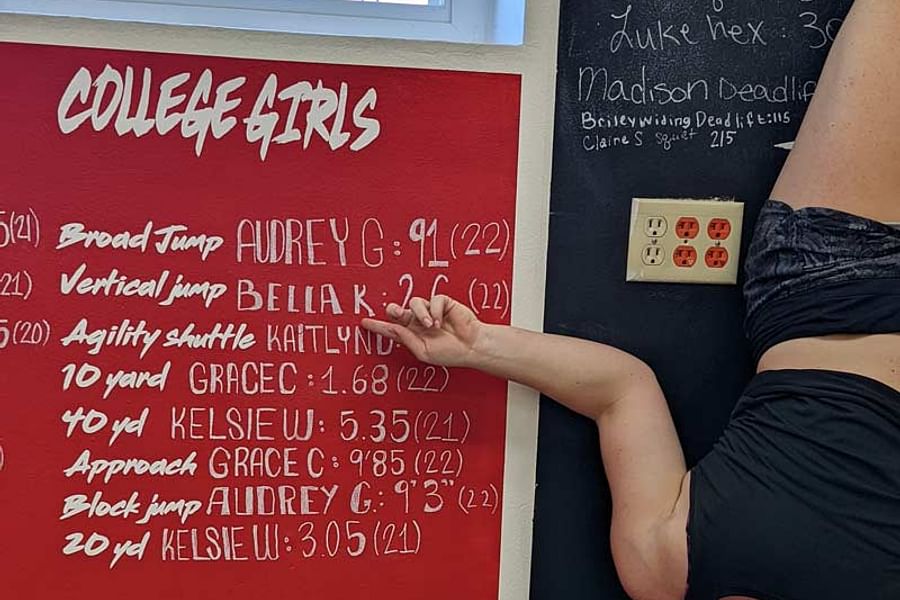 COLLEGE GIRLS
(21) Broad Jump AUDREY G: 91 (22)
21) Vertical jump BELLA K: (22)
(20) Agility shuttle KAITLYN
10 yard GRACE C: 1.68 (22)
40 yd KELSIE W: 5.35 (21)
Approach GRACE C: 9'85 (22)
Block jump AUDREY G.: 9'3" (22)
20 yd KELSIE W: 3.05 (21)
Luke hex: 30
Madison Deadlif
Briley Widing Deadlift: 115
Claire S squat 215